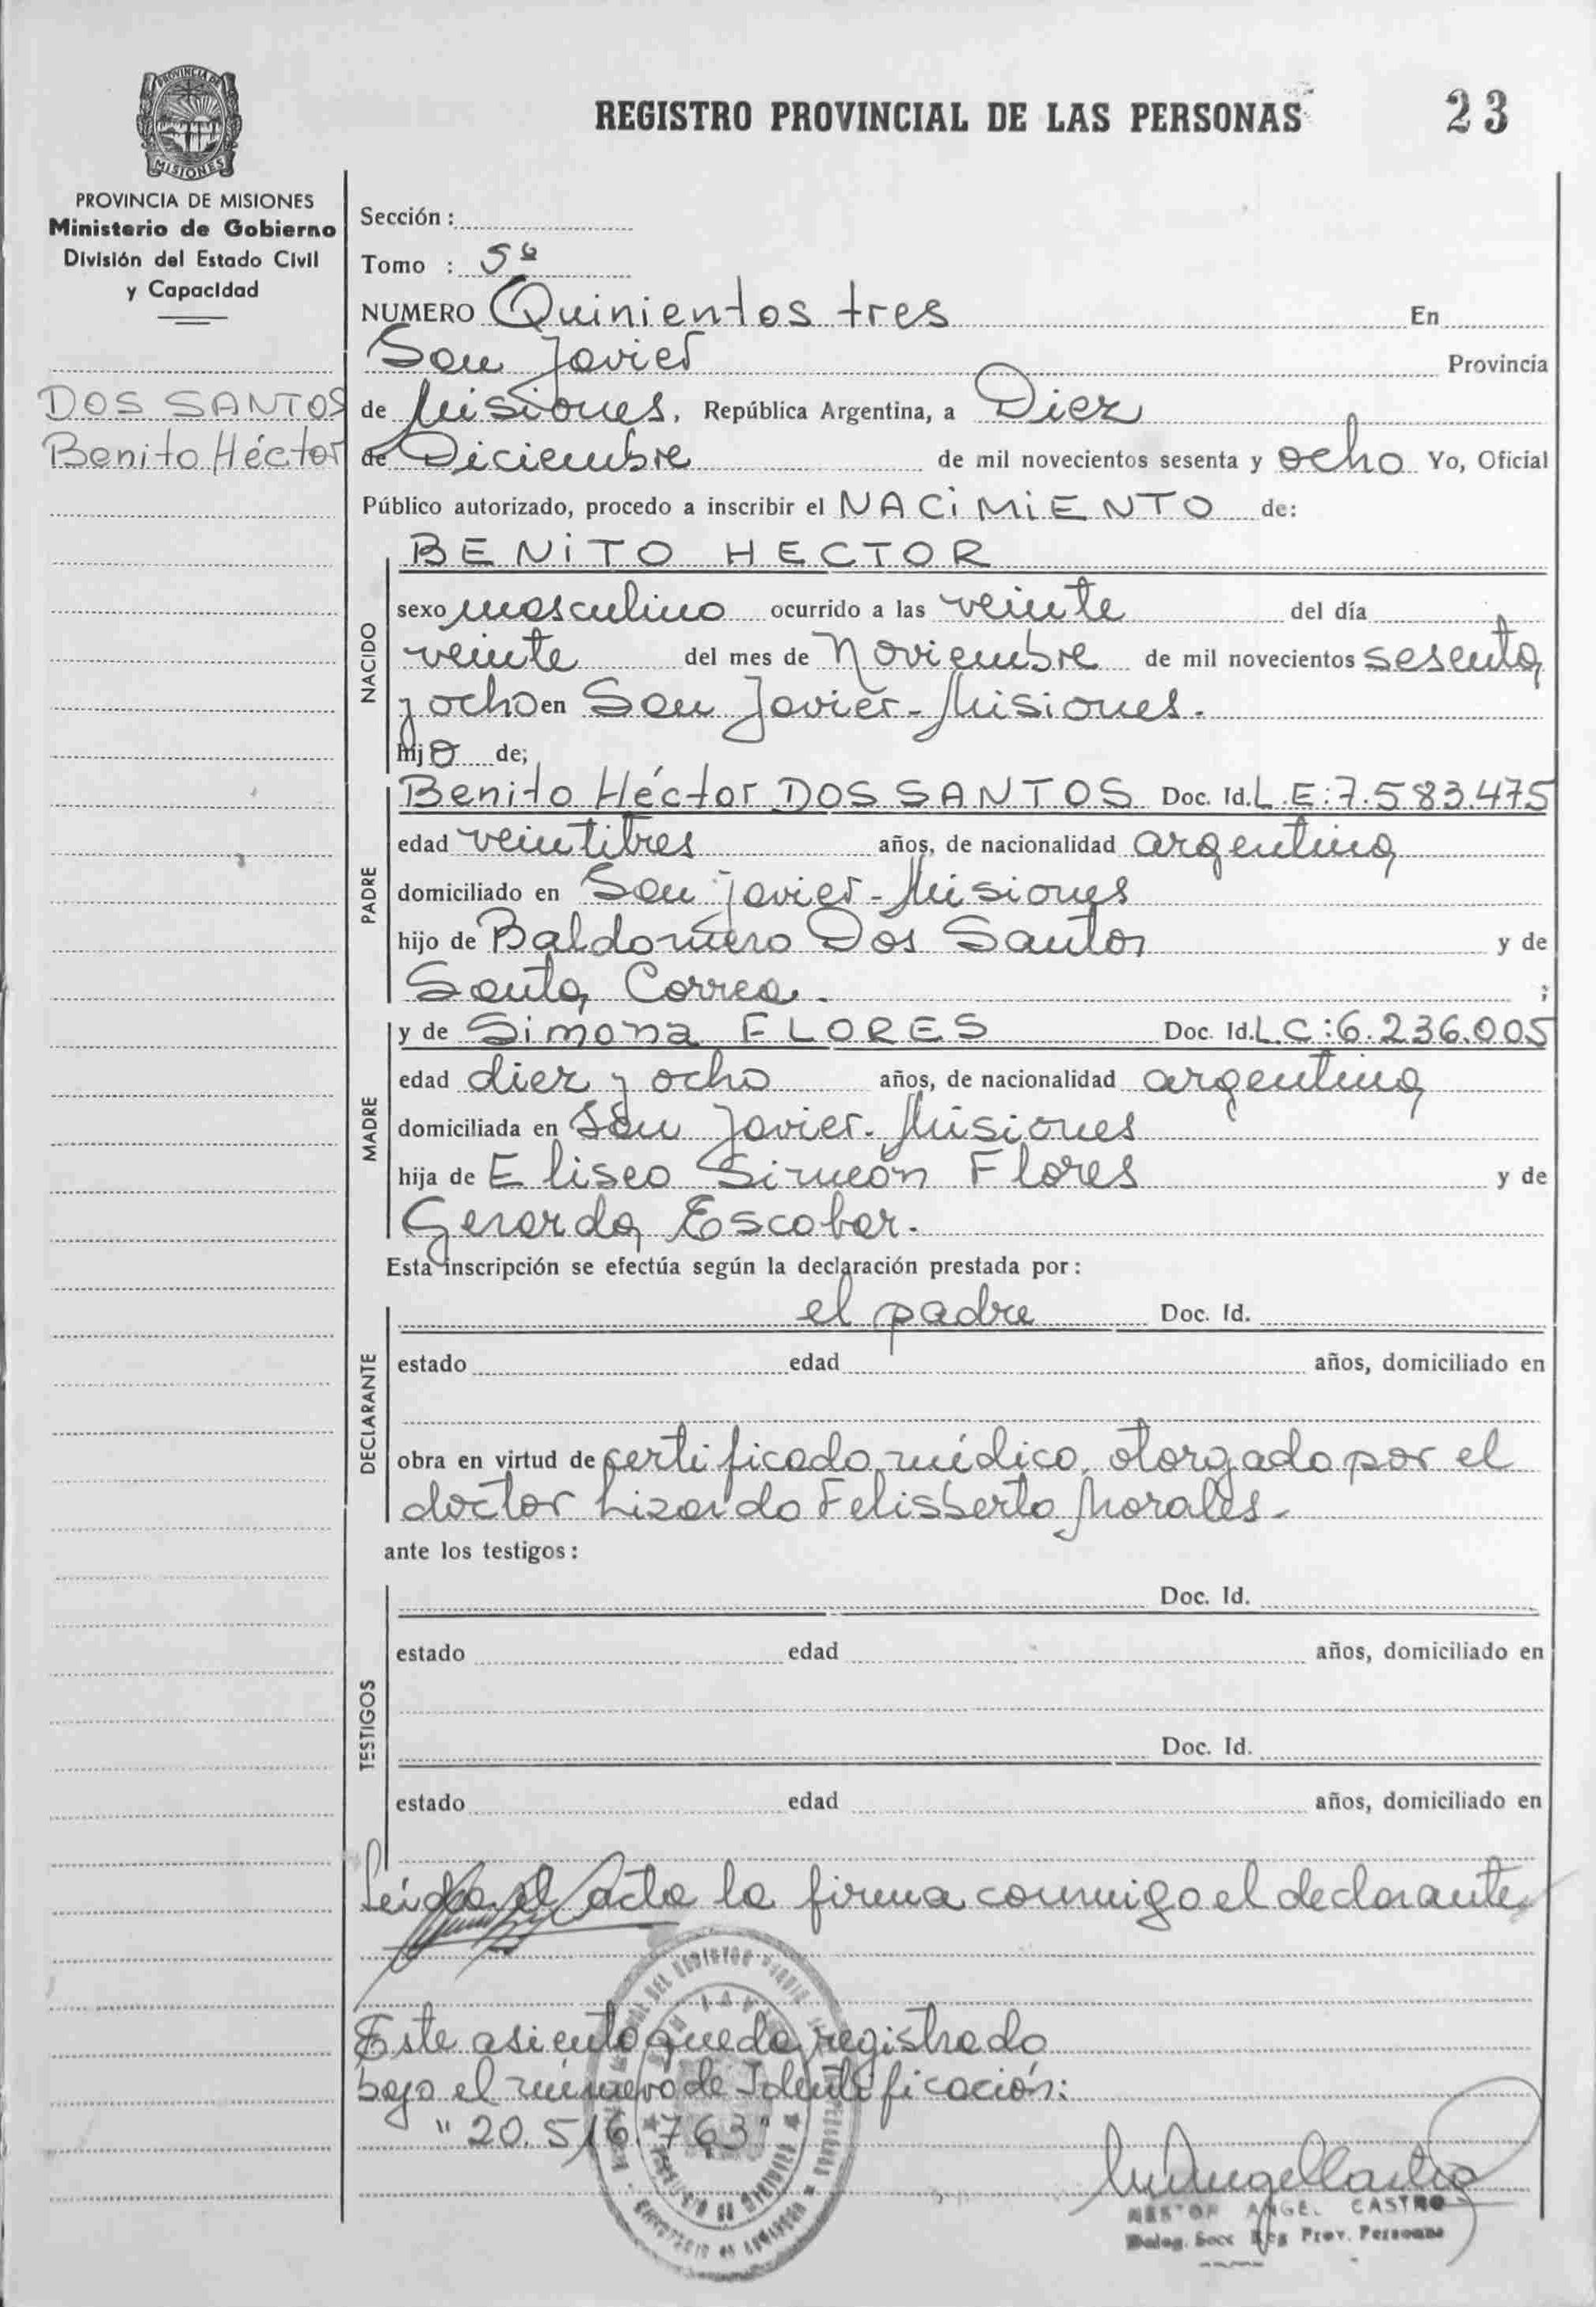 PROVINCIA DE
MISIONES
REGISTRO PROVINCIAL DE LAS PERSONAS 23
PROVINCIA DE MISIONES
Ministerio de Gobierno
División del Estado Civil
y Capacidad
DOS SANTOS
Benito Héctor
Sección :
Tomo : 5º
NUMERO Quinientos tres En
San Javier Provincia
de Misiones, República Argentina, a Diez
de Diciembre de mil novecientos sesenta y ocho Yo, Oficial
Público autorizado, procedo a inscribir el NACiMiENTO de:
NACIDO
BENiTO HECTOR
sexo masculino ocurrido a las veinte del día
veinte del mes de Noviembre de mil novecientos sesenta
y ocho en San Javier-Misiones.
hijo de;
PADRE
Benito Héctor DOS SANTOS Doc. Id. L.E:7.583.475
edad veintitres años, de nacionalidad argentina
domiciliado en San Javier-Misiones
hijo de Baldomero Dos Santos y de
Santa Correa. ;
MADRE
y de Simona FLORES Doc. Id. L.C:6.236.005
edad diez y ocho años, de nacionalidad argentina
domiciliada en San Javier. Misiones
hija de Eliseo Simeón Flores y de
Gerarda Escobar.
Esta inscripción se efectúa según la declaración prestada por :
DECLARANTE
el padre Doc. Id.
estado edad años, domiciliado en
obra en virtud de certificado médico, otorgado por el
doctor Lizardo Felisberto Morales.
ante los testigos :
TESTIGOS
Doc. Id.
estado edad años, domiciliado en
Doc. Id.
estado edad años, domiciliado en
Leida el acta la firma conmigo el declarante
Este asiento queda registrado
bajo el número de Identificación:
"20.516.763"
NESTOR ANGEL CASTRO
Deleg. Secc Reg Prov. Personas